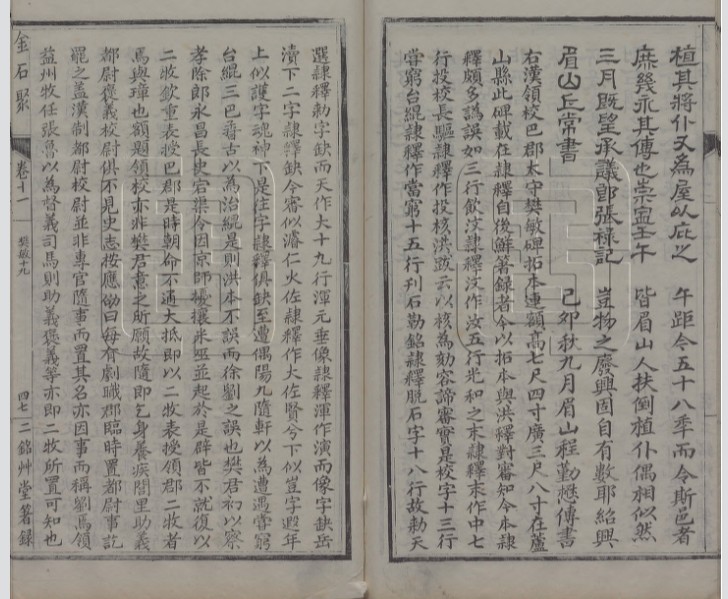 植其將仆又為屋以庇之
庶幾永其傳也崇寧壬午
三月既望承議郎張祿記
眉山丘常書
午距今五十八季而令斯邑者
皆眉山人扶倒植仆偶相似然
豈物之廢興固自有數耶紹興
己卯秋九月眉山程勤懋傳書
右漢領校巴郡太守樊敏碑拓本連額高七尺四寸廣三尺八寸在蘆
山縣此碑載在隸釋自後鮮箸錄者今以拓本與洪釋對審知今本隸
釋頗多譌誤如三行飲汶隸釋汶作汝五行光和之末隸釋末作中七
行投核長驅隸釋作投核洪跋云以核為劾容諦審實是校字十三行
當窮台緄隸釋作當窮十五行刊石勒銘隸釋脫石字十八行故勑天
選隸釋勑字缺而天作大十九行渾元垂像隸釋渾作演而像字缺岳
瀆下二字隸釋缺今審似濬仁火佐隸釋作大佐賢兮下似豈字嘏年
上似護字魂神下是往字隸釋俱缺至遭偶陽九隨軒以為遭遇當窮
台緄三巴𦙍古以為治緄是則洪本不誤而徐劉之誤也樊君初以察
孝除郎永昌長史宕渠令因京師擾攘米巫並起於是辟皆不就復以
二牧欽重表授巴郡是時朝命不通大抵即以二牧表授領郡二牧者
馬與璋也額題領校亦非樊君意之所願故隨即乞身養疾閭里助義
都尉褒義校尉俱不見史志按應劭曰每有劇職郡臨時置都尉事訖
罷之蓋漢制都尉校尉並非專官隨事而置其名亦因事而稱劉焉領
益州牧任張魯以為督義司馬則助義褒義等亦即二牧所置可知也
金石聚
卷十一
樊敏十九
四七
二銘艸堂箸錄